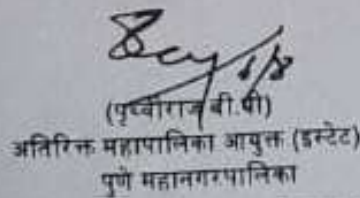 (पृथ्वीराज बी.पी)
अतिरिक्त महापालिका आयुक्त (इस्टेट)
पुणे महानगरपालिका